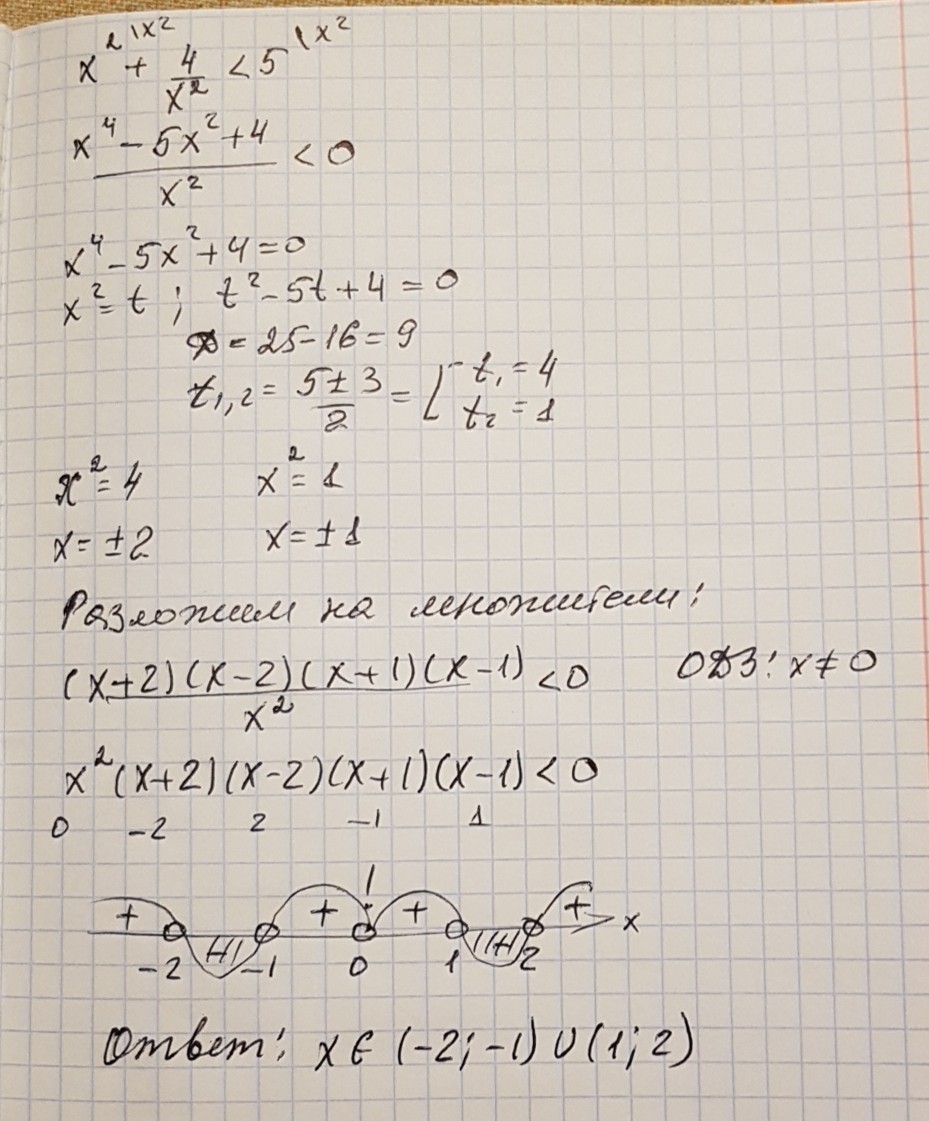 x² + 4/x² < 5 |x² |x²
(x⁴ - 5x² + 4)/x² < 0
x⁴ - 5x² + 4 = 0
x² = t ; t² - 5t + 4 = 0
D = 25 - 16 = 9
t₁,₂ = (5 ± 3)/2 = [ t₁ = 4
t₂ = 1
x² = 4 x² = 1
x = ±2 x = ±1
Разложим на множители:
(x+2)(x-2)(x+1)(x-1)/x² < 0 ОДЗ: x ≠ 0
x²(x+2)(x-2)(x+1)(x-1) < 0
0 -2 2 -1 1
+ + + + x
-2 -1 0 1 2
Ответ: x ∈ (-2; -1) ∪ (1; 2)